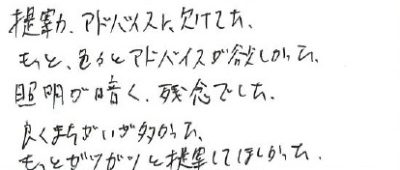 提案力、アドバイスに欠けてた。
もっと、色々とアドバイスが欲しかった。
照明が暗く、残念でした。
良くまちがいが多かった、
もっとガツガツと提案してほしかった.